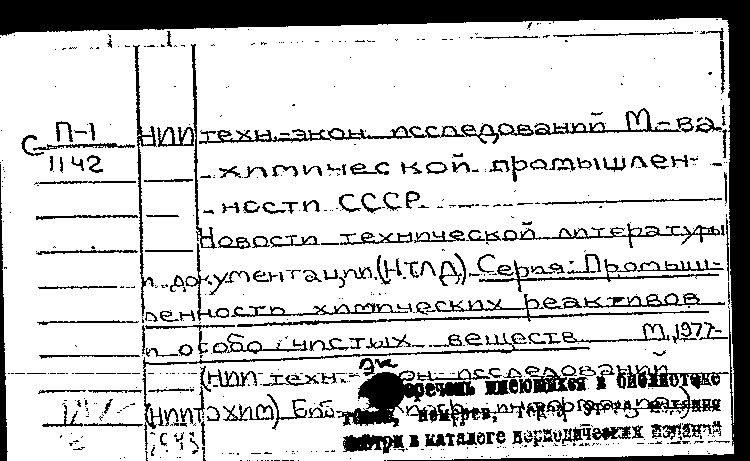 С П-1
1142
НИИ техн.-экон. исследований М-ва
химической промышлен-
ности СССР.
Новости технической литературы
и документации (НТЛД) Серия: Промыш-
ленность химических реактивов
и особо чистых веществ М., 1977-
(НИИ техн.-экон. исследований
(НИИТЭХИМ)
перечень имеющихся в библиотеке
томов, номеров, этого издания
смотри в каталоге периодических изданий